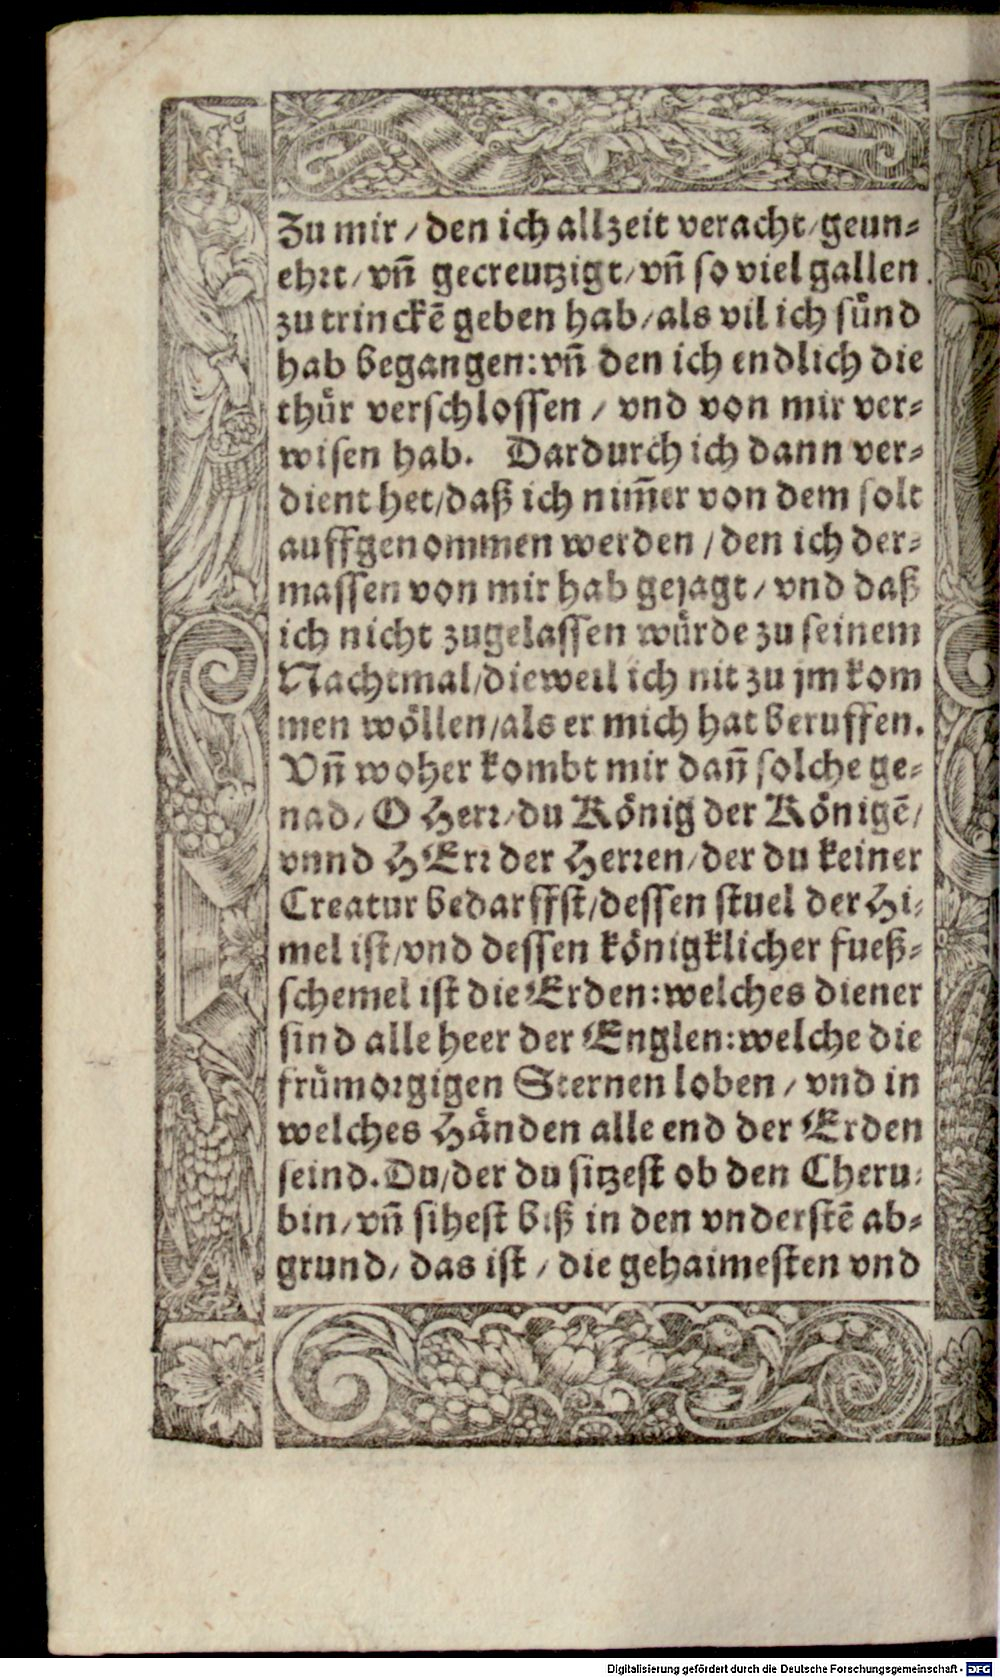 Zu mir / den ich allzeit veracht / geun⸗
ehrt / vn̄ gecreutzigt / vn̄ so viel gallen
zu trinckē geben hab / als vil ich sünd
hab begangen: vn̄ den ich endlich die
thür verschlossen / vnd von mir ver⸗
wisen hab. Dardurch ich dann ver⸗
dient het / daß ich nim̄er von dem solt
auffgenommen werden / den ich der⸗
massen von mir hab gejagt / vnd daß
ich nicht zugelassen würde zu seinem
Nachtmal / dieweil ich nit zu jm kom
men wöllen / als er mich hat beruffen.
Vn̄ woher kombt mir dan̄ solche ge⸗
nad / O Herr / du König der Königē /
vnnd HErr der Herren / der du keiner
Creatur bedarffst / dessen stuel der Hi⸗
mel ist / vnd dessen königklicher fueß⸗
schemel ist die Erden: welches diener
sind alle heer der Englen: welche die
frümorgigen Sternen loben / vnd in
welches Händen alle end der Erden
seind. Du / der du sitzest ob den Cheru⸗
bin / vn̄ sihest biß in den vnderstē ab⸗
grund / das ist / die gehaimesten vnd
Digitalisierung gefördert durch die Deutsche Forschungsgemeinschaft - DFG